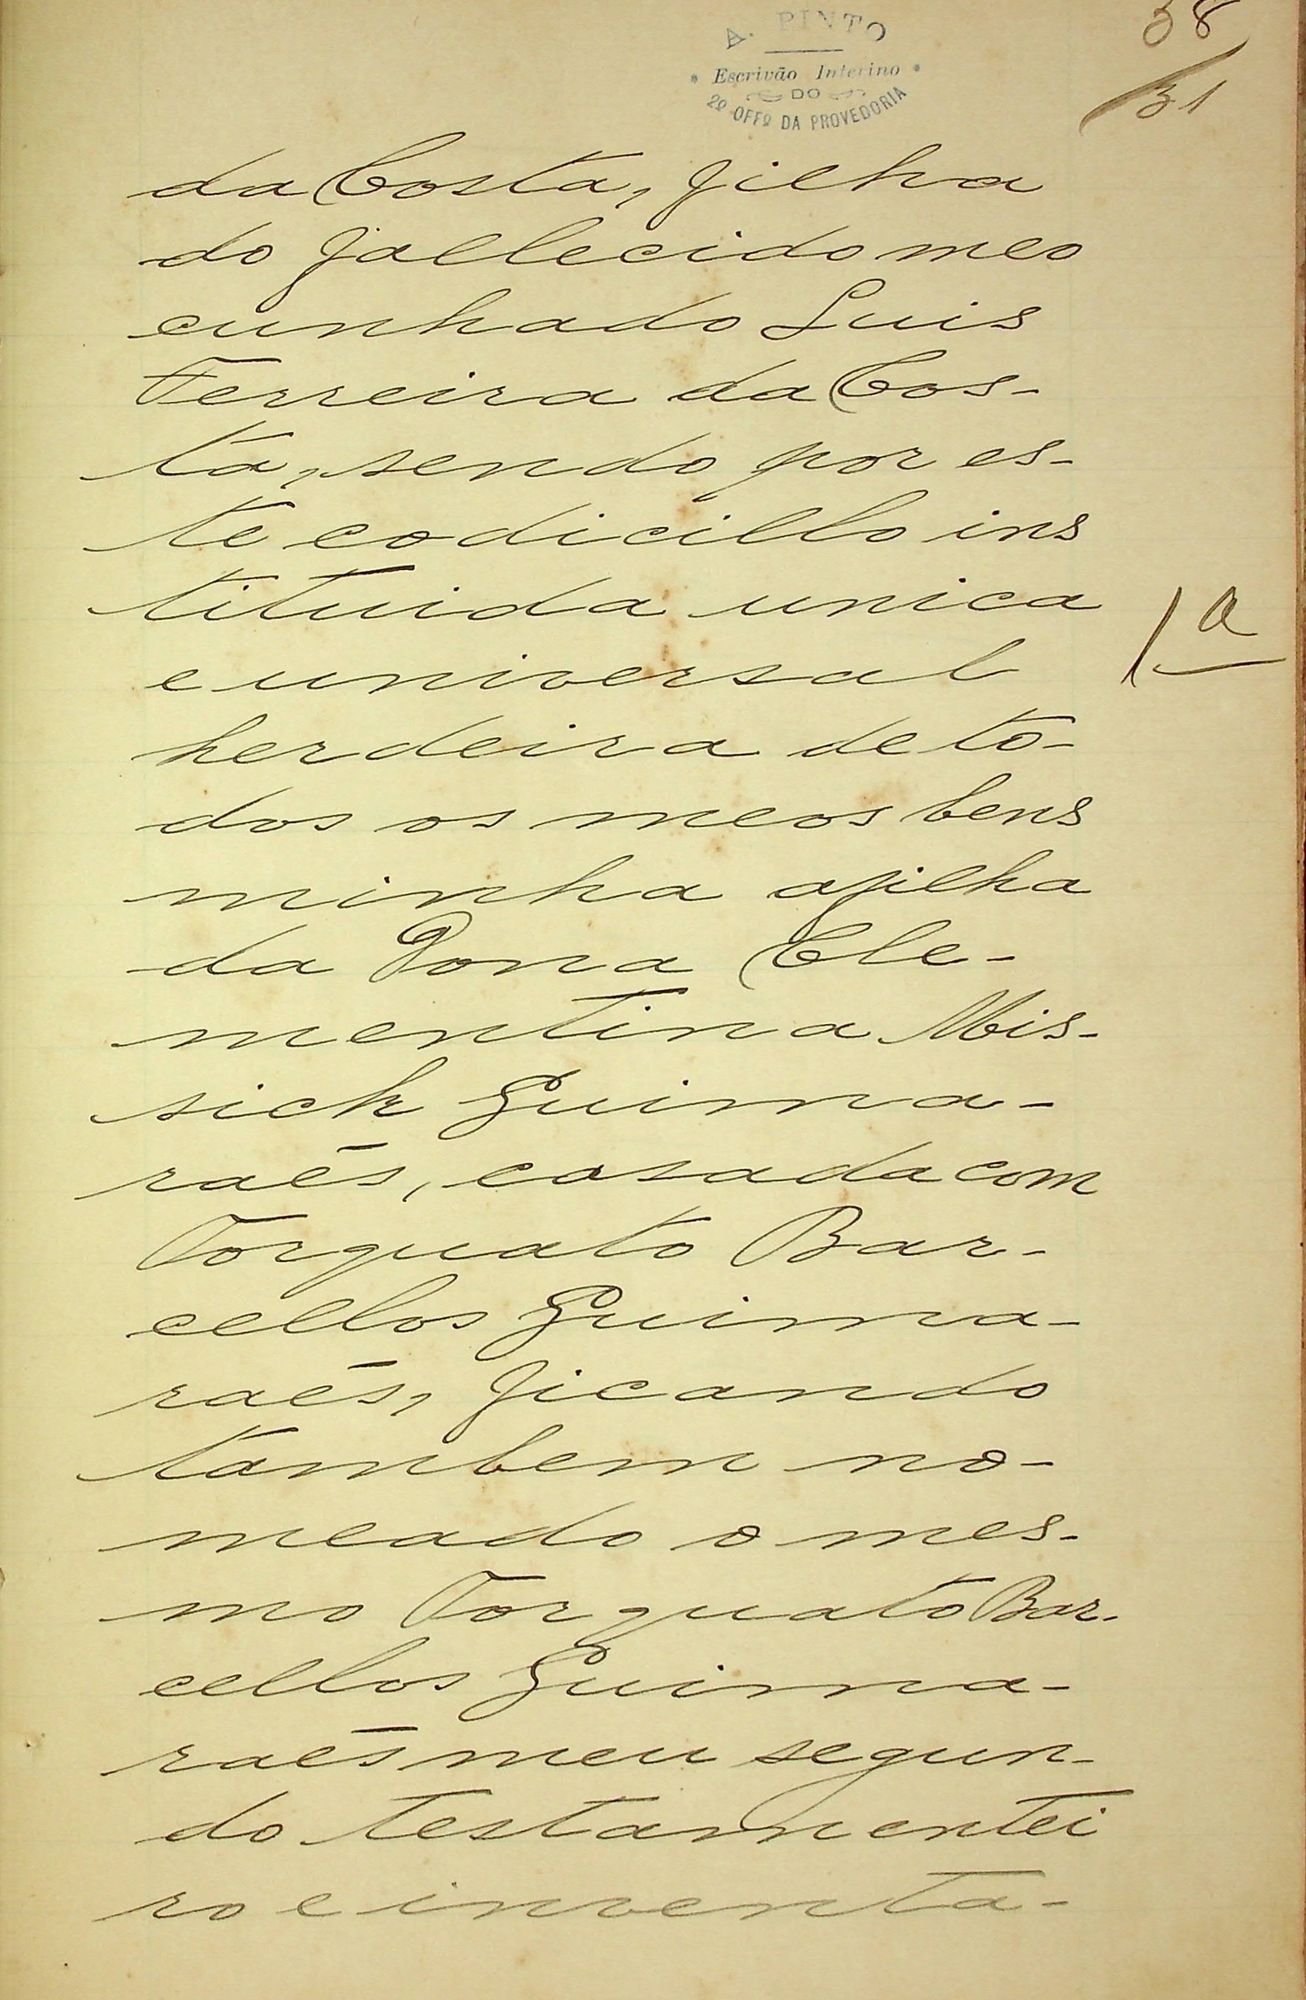 38
31
A. PINTO
Escrivão Interino
DO
2º OFFº DA PROVEDORIA
da Costa, filha
do fallecido meo
cunhado Luis
Ferreira da Cos-
ta, sendo por es-
te codicillo ins
tituida unica
1a
e universal
herdeira de to-
dos os meos bens
minha afilha
da Dona Cle-
mentina Mis-
sick Guima-
raẽs, casada com
Torquato Bar-
cellos Guima-
raẽs, ficando
tambem no-
meado o mes-
mo Torquato Bar-
cellos Guima-
raẽs meu segun-
do testamentei
ro e inventa-